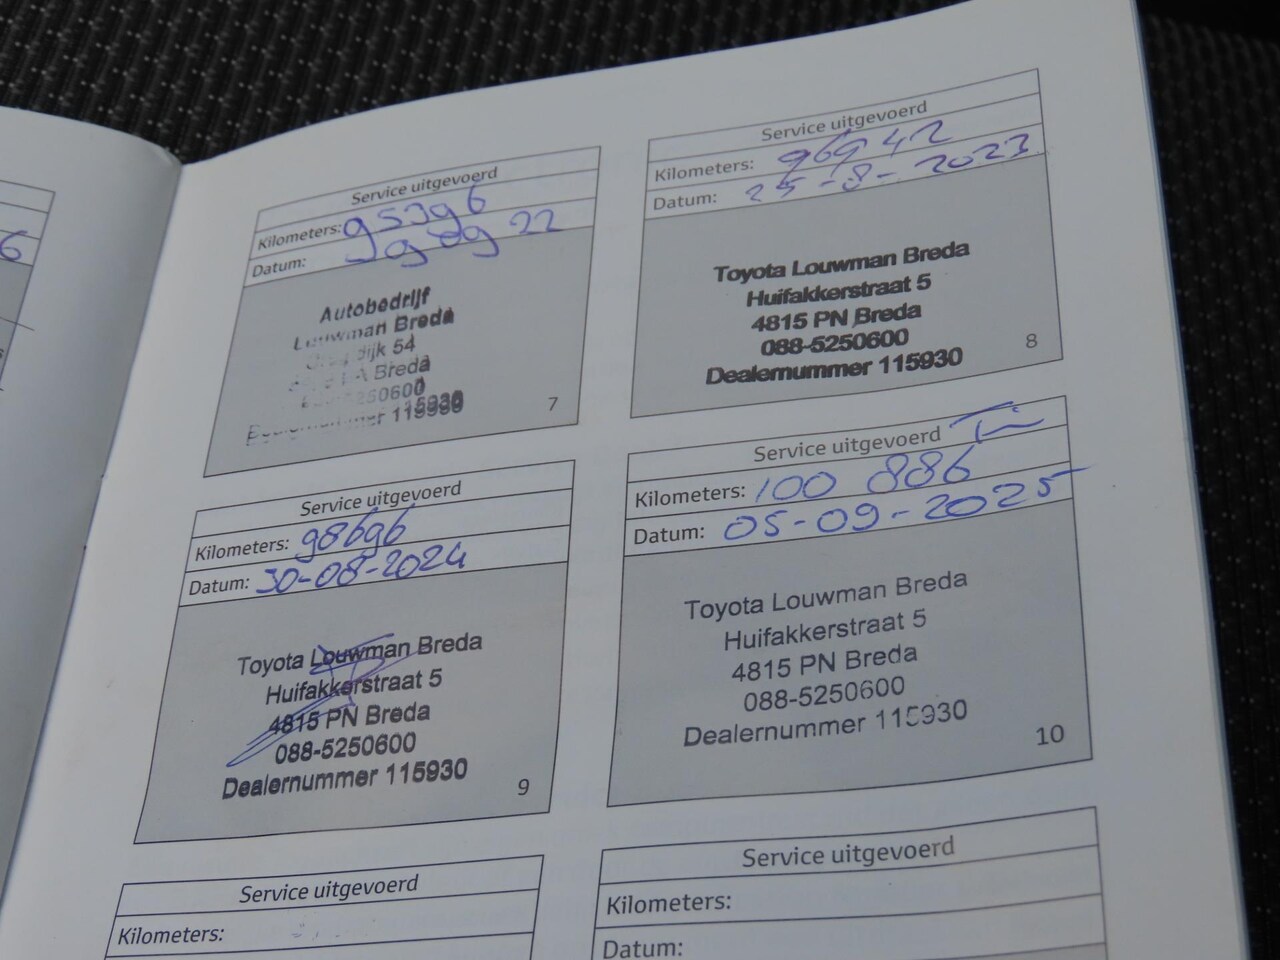 6
Service uitgevoerd
Kilometers: 95396
Datum: 22
Autobedrijf
Louwman Breda
dijk 54
Breda
250600
Dealernummer 115930
7
Service uitgevoerd
Kilometers: 96942
Datum: 25-8-2023
Toyota Louwman Breda
Huifakkerstraat 5
4815 PN Breda
088-5250600
Dealernummer 115930
8
Service uitgevoerd
Kilometers: 98696
Datum: 30-08-2024
Toyota Louwman Breda
Huifakkerstraat 5
4815 PN Breda
088-5250600
Dealernummer 115930
9
Service uitgevoerd
Kilometers: 100 886
Datum: 05-09-2025
Toyota Louwman Breda
Huifakkerstraat 5
4815 PN Breda
088-5250600
Dealernummer 115930
10
Service uitgevoerd
Kilometers:
Service uitgevoerd
Kilometers:
Datum: